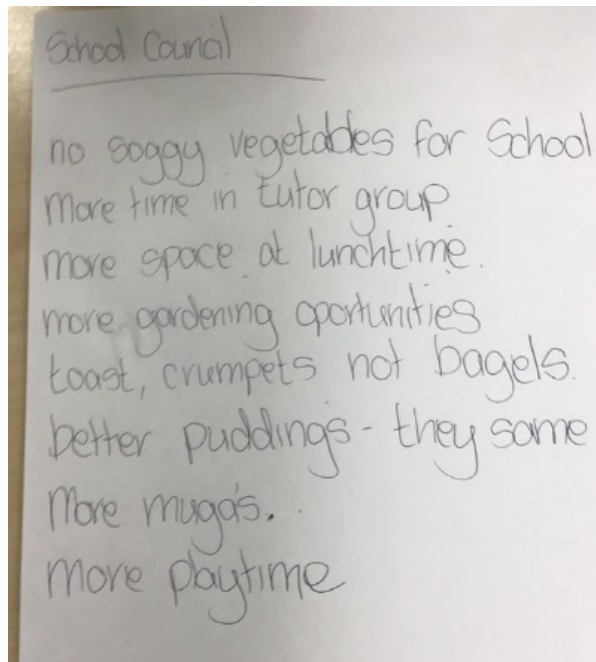 School Council
no soggy vegetables for School
more time in tutor group
more space at lunchtime.
more gardening oportunities
toast, crumpets not bagels.
better puddings - they same
More muga's.
more playtime